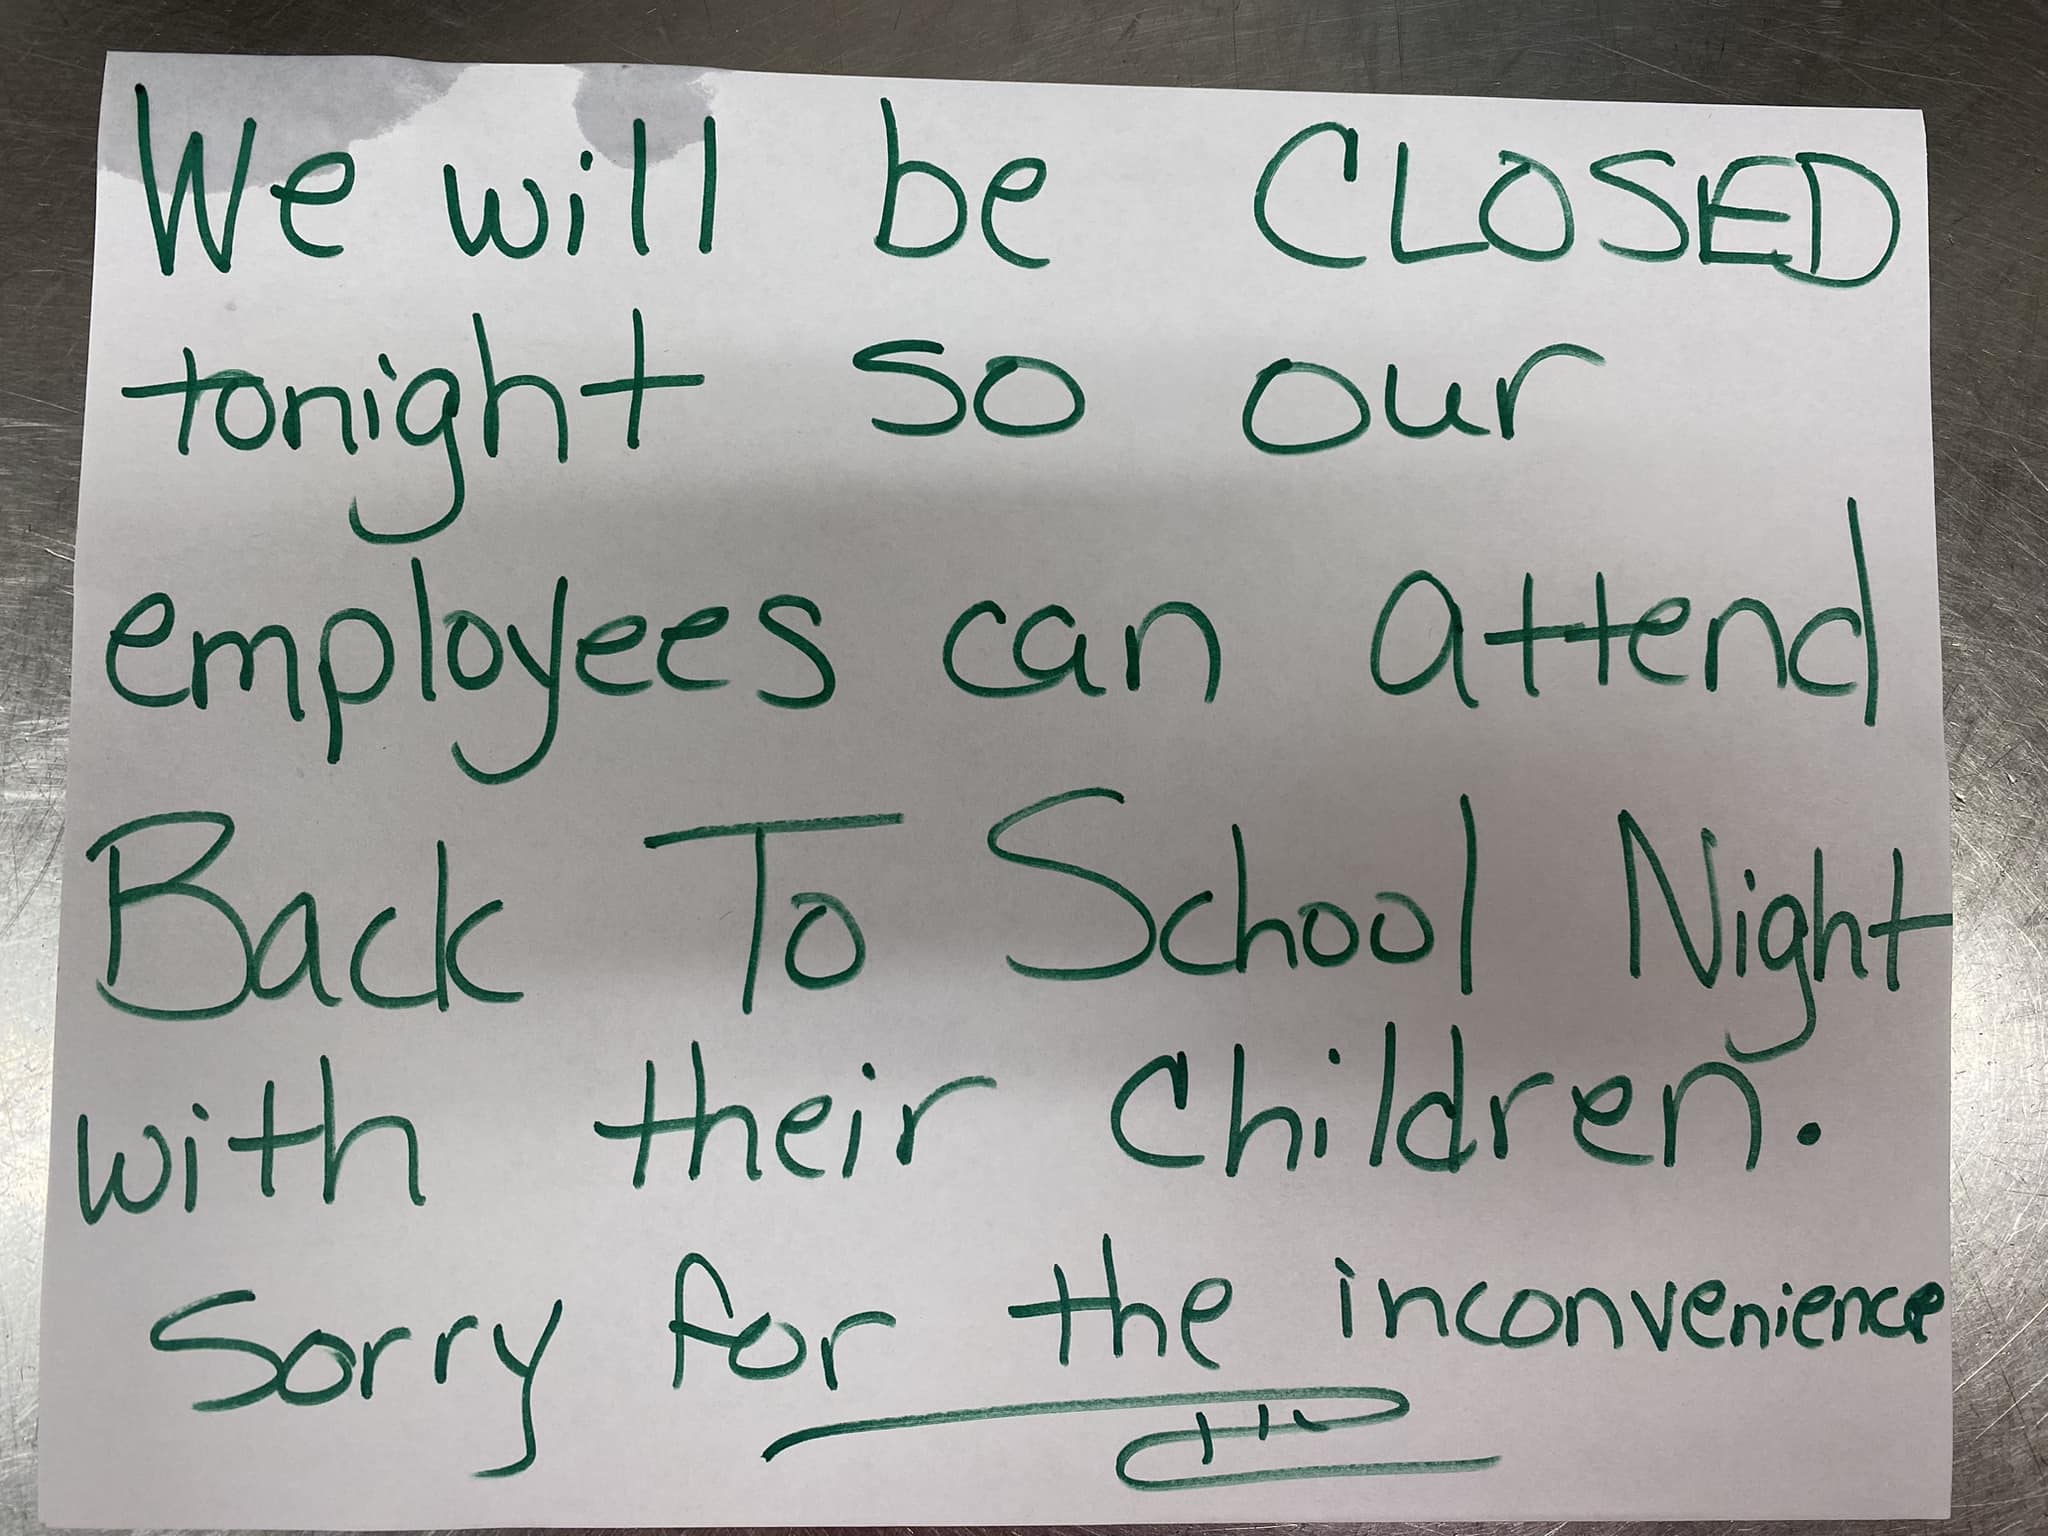 We will be CLOSED
tonight so our
employees can attend
Back To School Night
with their Children.
Sorry for the inconvenience